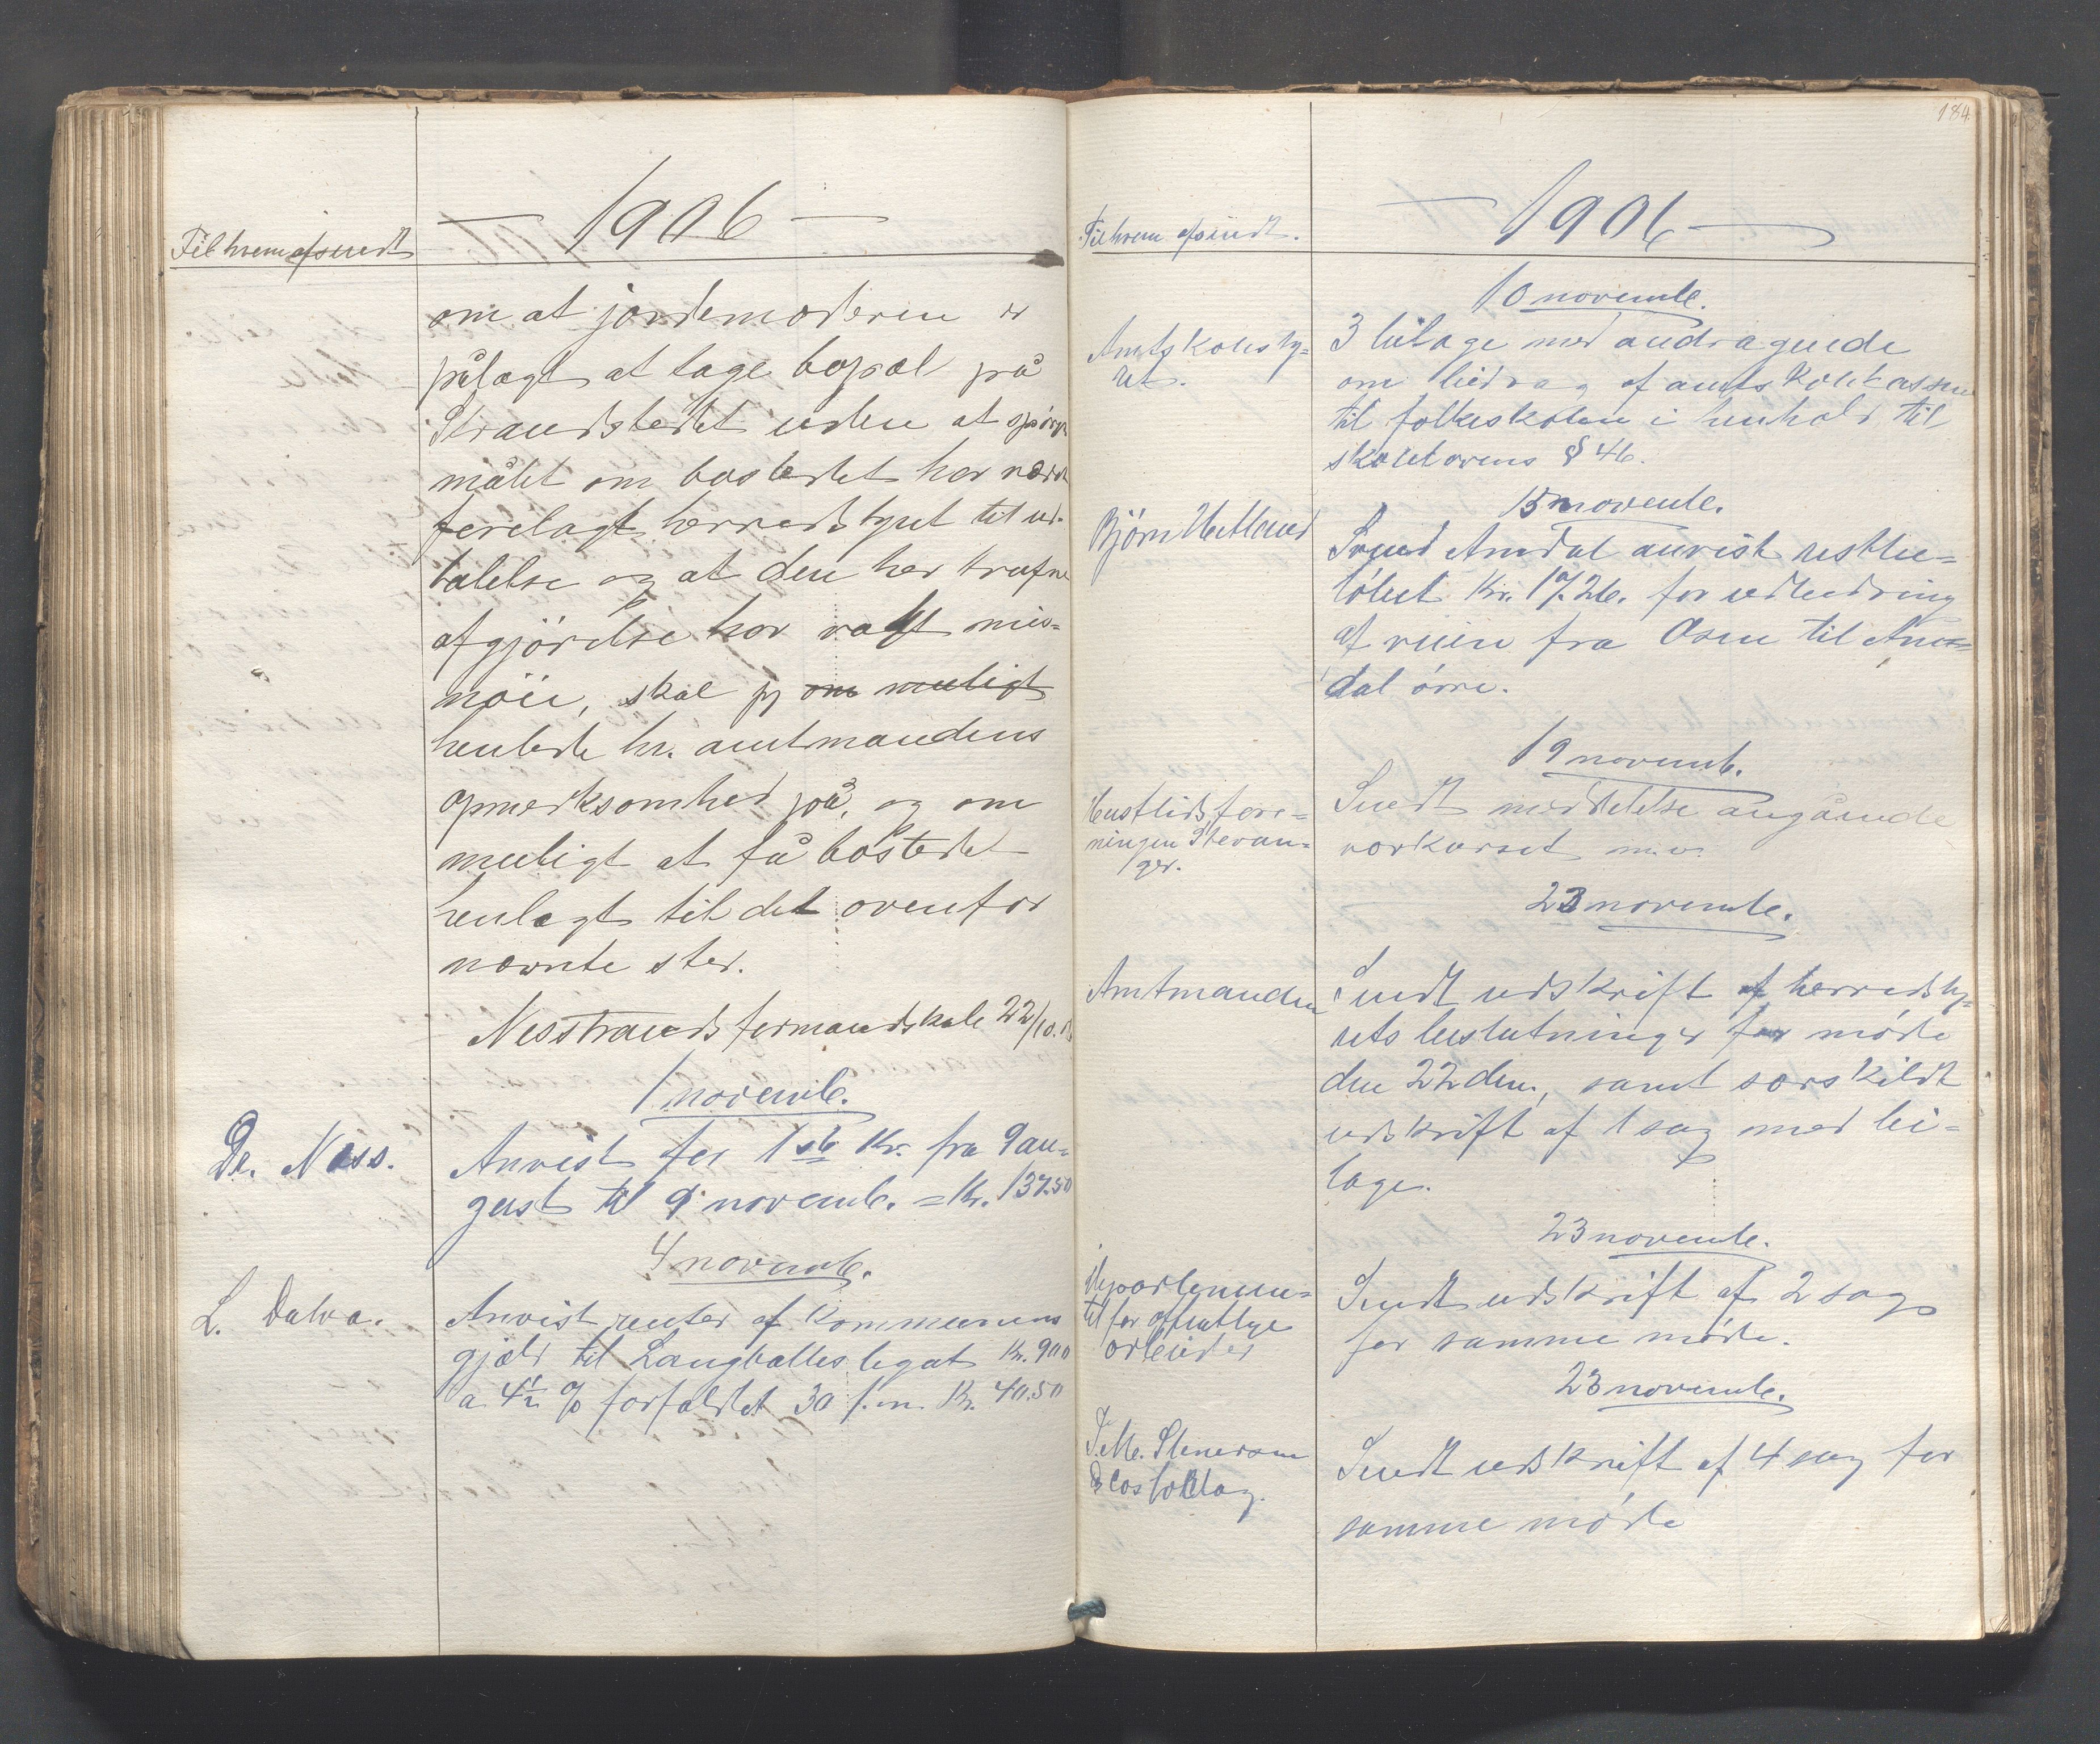 Til hvem afsendt
— 1906 —
om at jordemoderen er
pålagt at tage bopæl på
Strandstedet uden at spørgs
målet om bostedet har været
forelagt herredsstyret til ud-
talelse og at den her trufne
afgjörelse har vakt mis-
nöie, skal jeg om muligt
henlede hr. amtmandens
opmerksomhed på, og om
muligt at få bostedet
henlagt til det ovenfor
nævnte sted.
Nesstrands formandskab 22/10. 06
1 novemb.
Dr. Næss.
Anvist for 1ste Kv. fra 9 au-
gust til 9 novemb. = Kr. 137.50
4 novemb.
L. Dalva.
Anvist renter af kommunens
gjæld til Langballes legat Kr. 900
a 4½ % forfaldet 30 f. m. Kr. 40.50
184
Til hvem afsendt.
— 1906 —
10 novembe.
Amtskolesty-
ret.
3 bilage med andragende
om bidrag af amtsskolekassen
til folkeskolen i henhold til
skolelovens § 46.
15 novembe.
Björn Hetland
Svend Amdal anvist restbe-
løbet Kr. 17.26. for udbedring
af veien fra Osen til Am-
dal övre.
19 novemb.
Husflidsfore-
ningen Stavan-
ger.
Sendt meddelelse angående
vorkurset m.v.
23 novembe.
Amtmanden
Sendt udskrift af herredsty-
rets beslutninger for møde
den 22 dm., samt særskildt
udskrift af 1 sag med bi-
lage.
23 novembe.
Departemen-
tet for offentlige
arbeider
Sendt udskrift af 2 sag
for samme møde.
23 novembe.
J. M. Stenersen
& Cos forlag.
Sendt udskrift af 4 sag for
samme møde